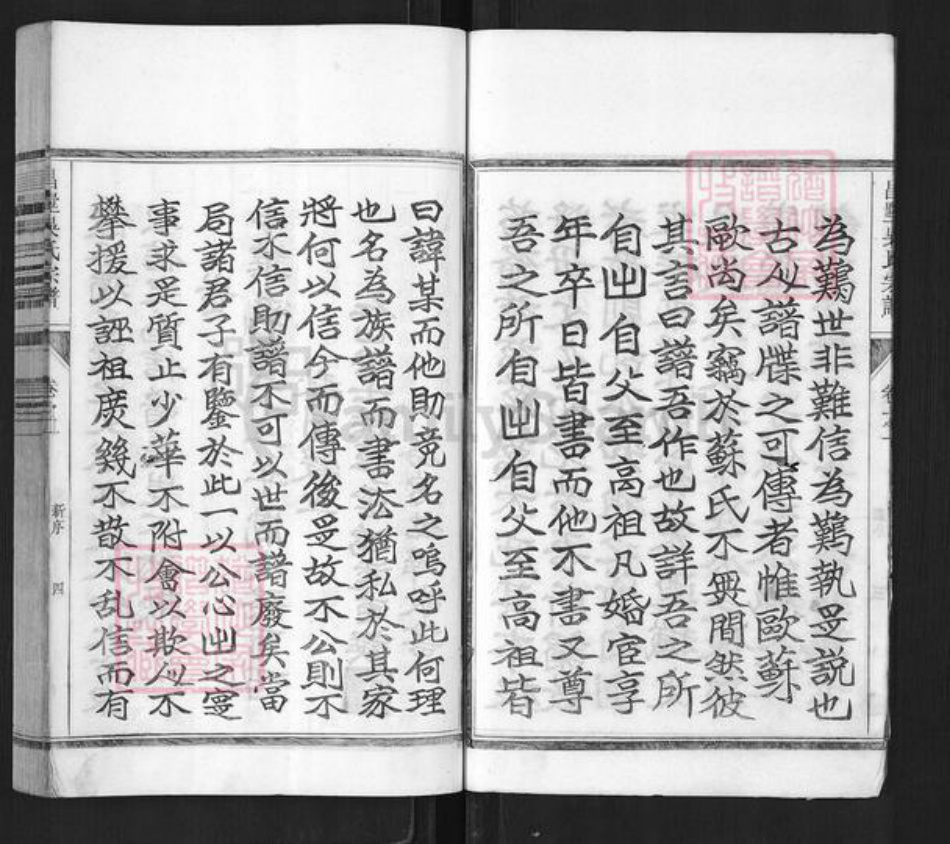 為難世非難信為難執是說也
古以譜牒之可傳者惟歐蘇
歐尚矣竊於蘇氏不無間然彼
其言曰譜吾作也故詳吾之所
自出自父至高祖凡婚宦享
年卒日皆書而他不書又尊
吾之所自出自父至高祖皆
曰諱某而他則竟名之嗚呼此何理
也名為族譜而書法猶私於其家
將何以信今而傳後是故不公則不
信不信則譜不可以世而譜廢矣當
局諸君子有鑒於此一以公心出之寔
事求是質止少華不附會以欺人不
攀援以誣祖庶幾不散不乱信而有
吳氏宗譜
新序
四